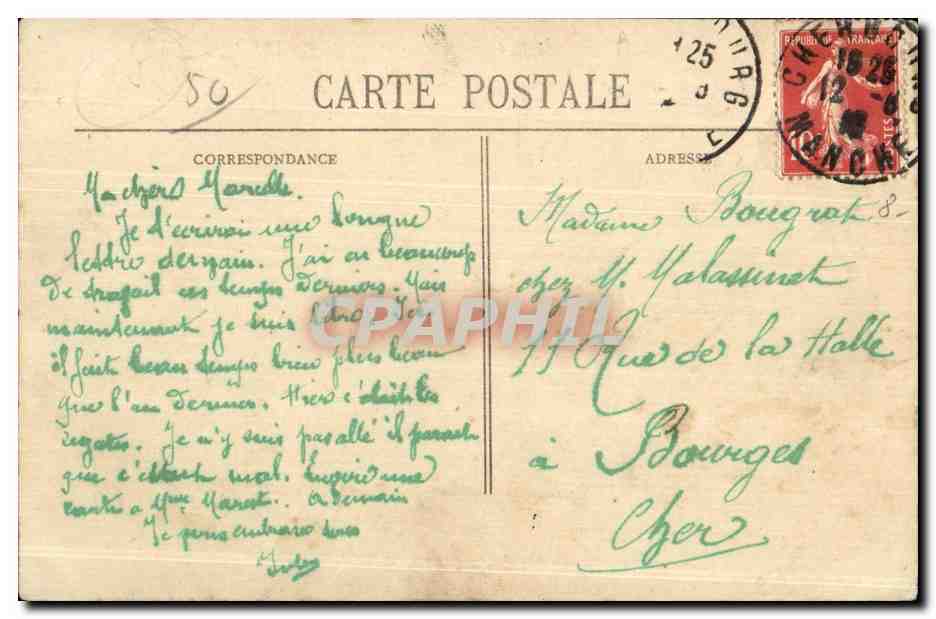 50
CARTE POSTALE
CORRESPONDANCE
ADRESSE
RÉPUBLIQUE FRANÇAISE
POSTES
10
CHERBOURG
15 25
12 -8
MANCHE
25
8
OURG
E
8-
Ma chère Marcelle.
Je t'écrirai une longue
lettre demain. J'ai eu beaucoup
de travail ces temps derniers. Mais
maintenant je suis
il fait beau temps bien plus beau
que l'an dernier. Hier c'était les
régates. Je n'y suis pas allé il parait
que c'était mal. Envoie une
carte a Mme Marest. a demain
Je vous embrasse tous
Jules
Madame Bougrat
chez M. Malassinet
11 Rue de la Halle
à Bourges
Cher
CPAPHIL